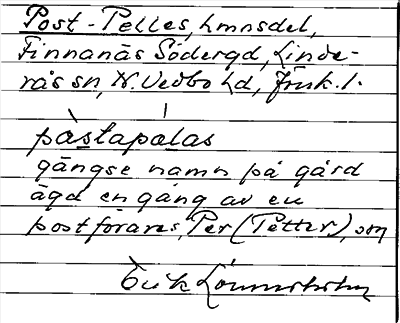 Post-Pelles, hmnsdel,
Finnanäs Södergd, Linde-
rås sn, N. Vedbo hd, Jönk. l.
pàstapálas
gängse namn på gård
ägd en gång av en
postförare, Per (Petter), son
Erik